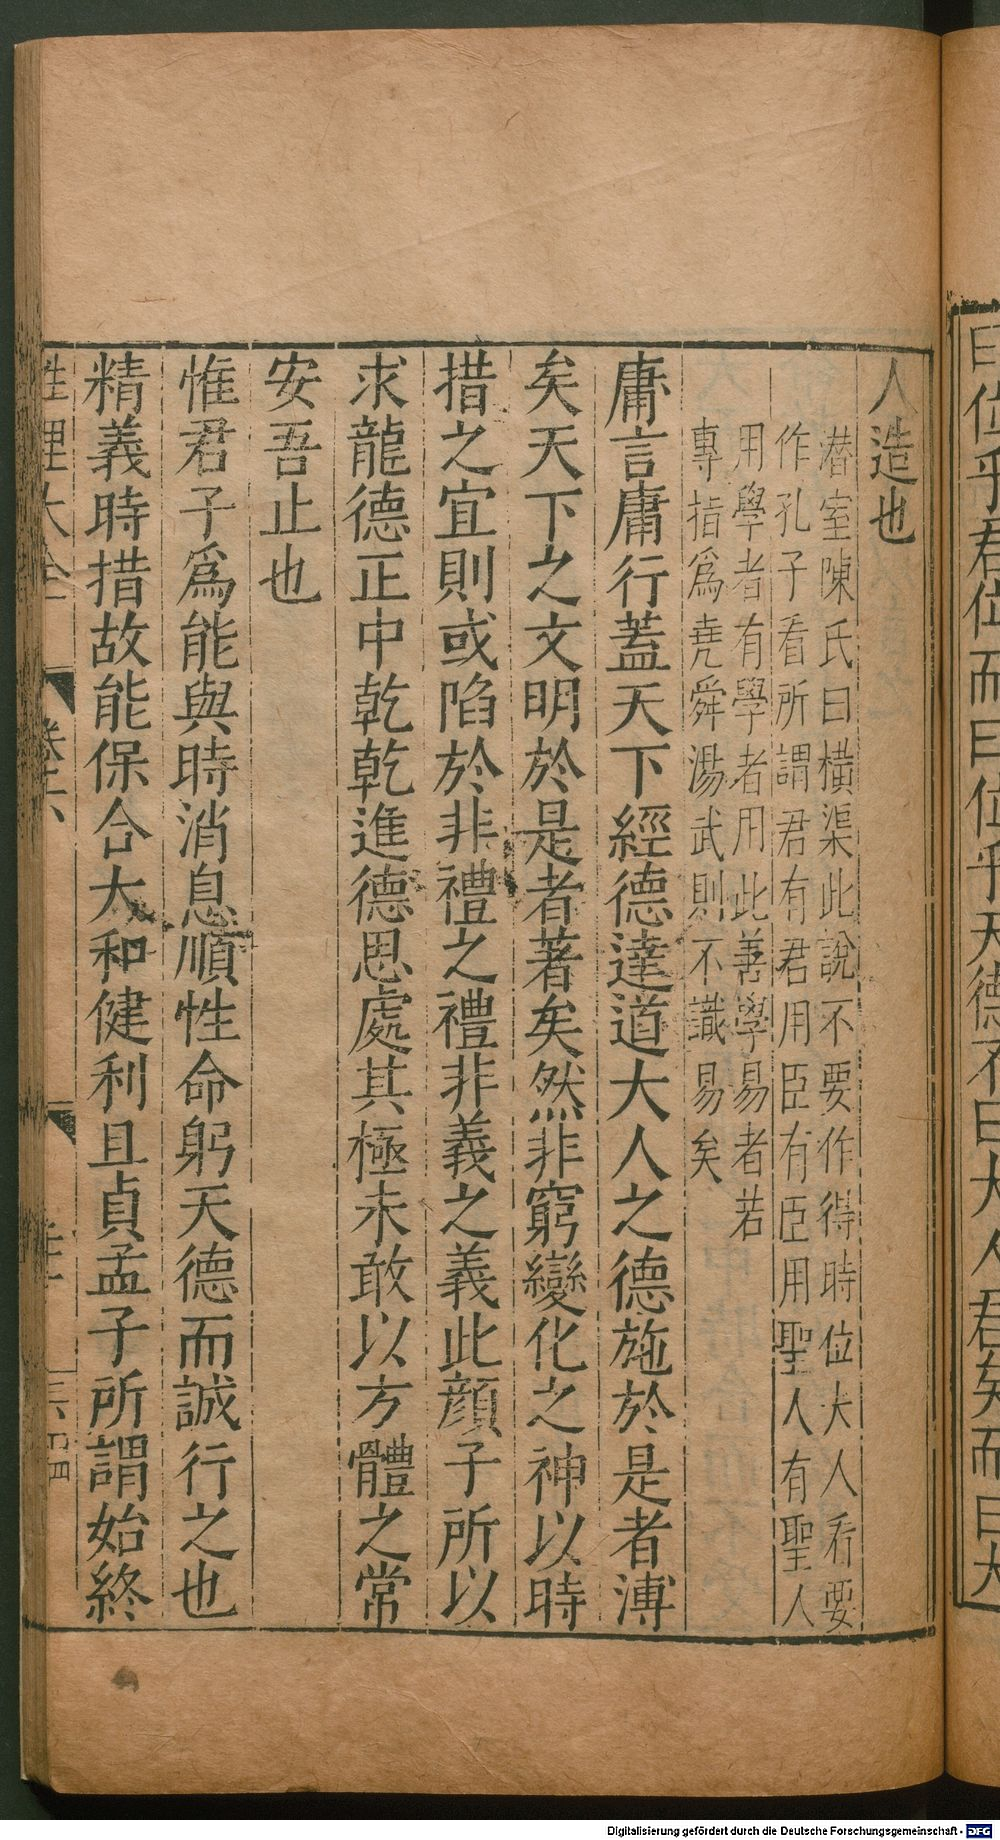 人造也
潜室陳氏曰橫渠此說不要作得時位大人看要
作孔子看所謂君有君用臣有臣用聖人有聖人
用學者有學者用此善學易者若
專指爲堯舜湯武則不識易矣
庸言庸行蓋天下經德達道大人之德施於是者溥
矣天下之文明於是者著矣然非窮變化之神以時
措之宜則或陷於非禮之禮非義之義此顔子所以
求龍德正中乾乾進德思處其極未敢以方體之常
安吾止也
惟君子爲能與時消息順性命躬天德而誠行之也
精義時措故能保合大和健利且貞孟子所謂始終
性理大全 卷六
Digitalisierung gefördert durch die Deutsche Forschungsgemeinschaft - DFG